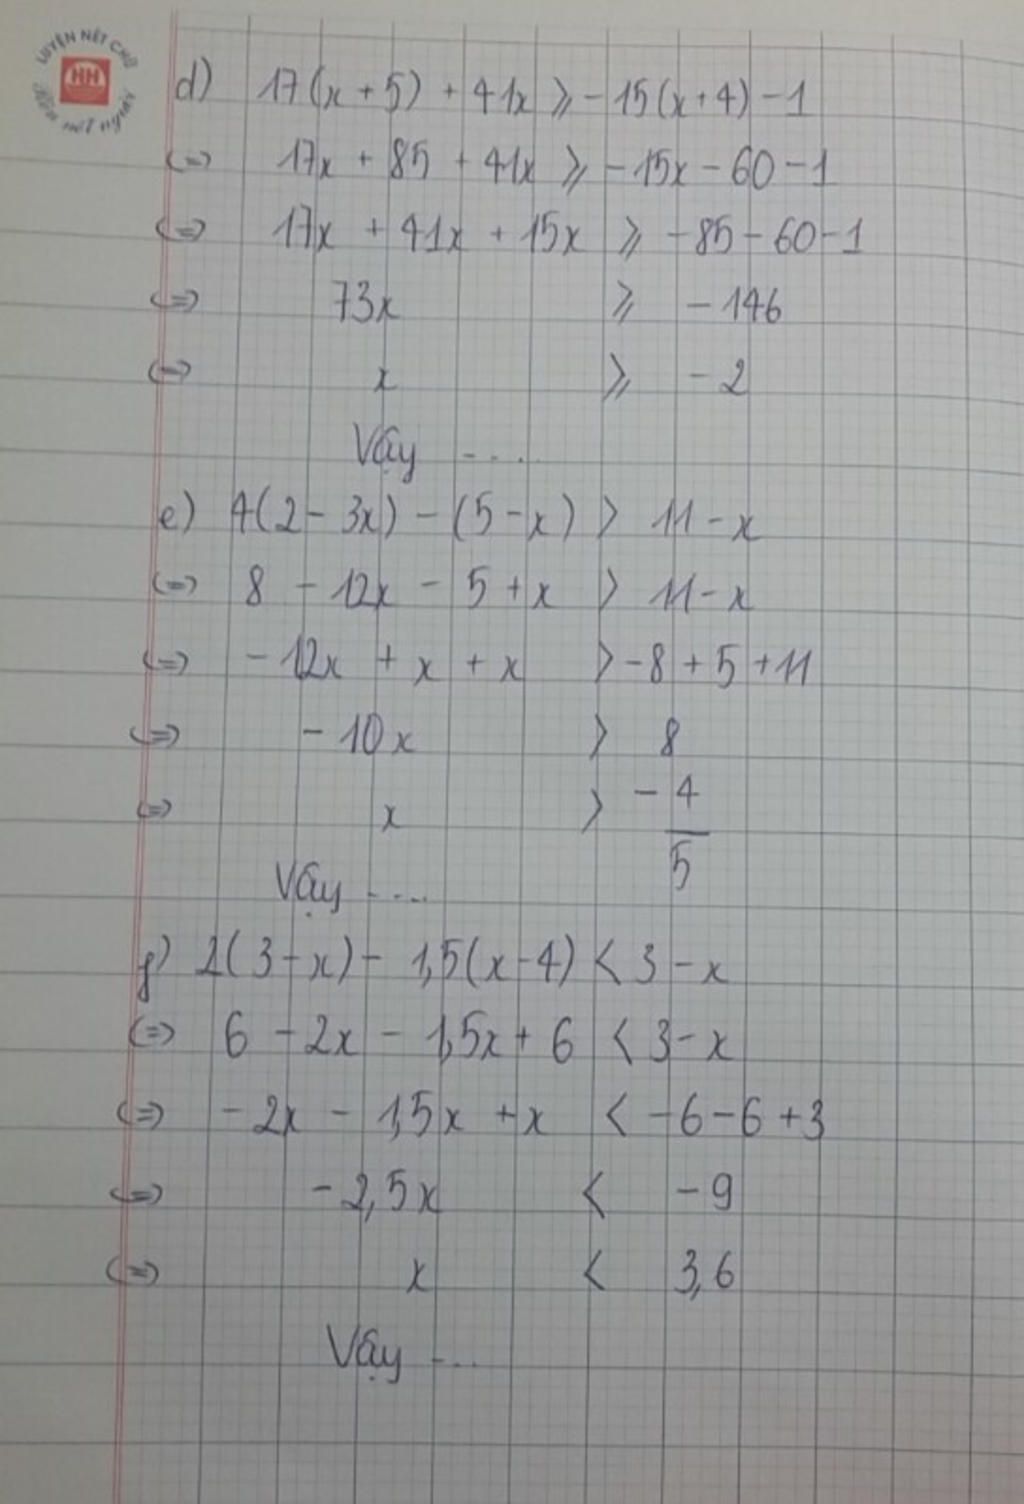 LUYỆN NÉT CHỮ
HH
nét người
d) 17(x + 5) + 41x ⩾ -15(x+4) - 1
<=> 17x + 85 + 41x ⩾ -15x - 60 - 1
<=> 17x + 41x + 15x ⩾ -85 - 60 - 1
<=> 73x ⩾ -146
<=> x ⩾ -2
Vậy ....
e) 4(2 - 3x) - (5 - x) > 11 - x
<=> 8 - 12x - 5 + x > 11 - x
<=> -12x + x + x > -8 + 5 + 11
<=> -10x > 8
<=> x > -4/5
Vậy ....
f) 2(3 - x) - 1,5(x - 4) < 3 - x
<=> 6 - 2x - 1,5x + 6 < 3 - x
<=> -2x - 1,5x + x < -6 - 6 + 3
<=> -2,5x < -9
<=> x < 3,6
Vậy ....